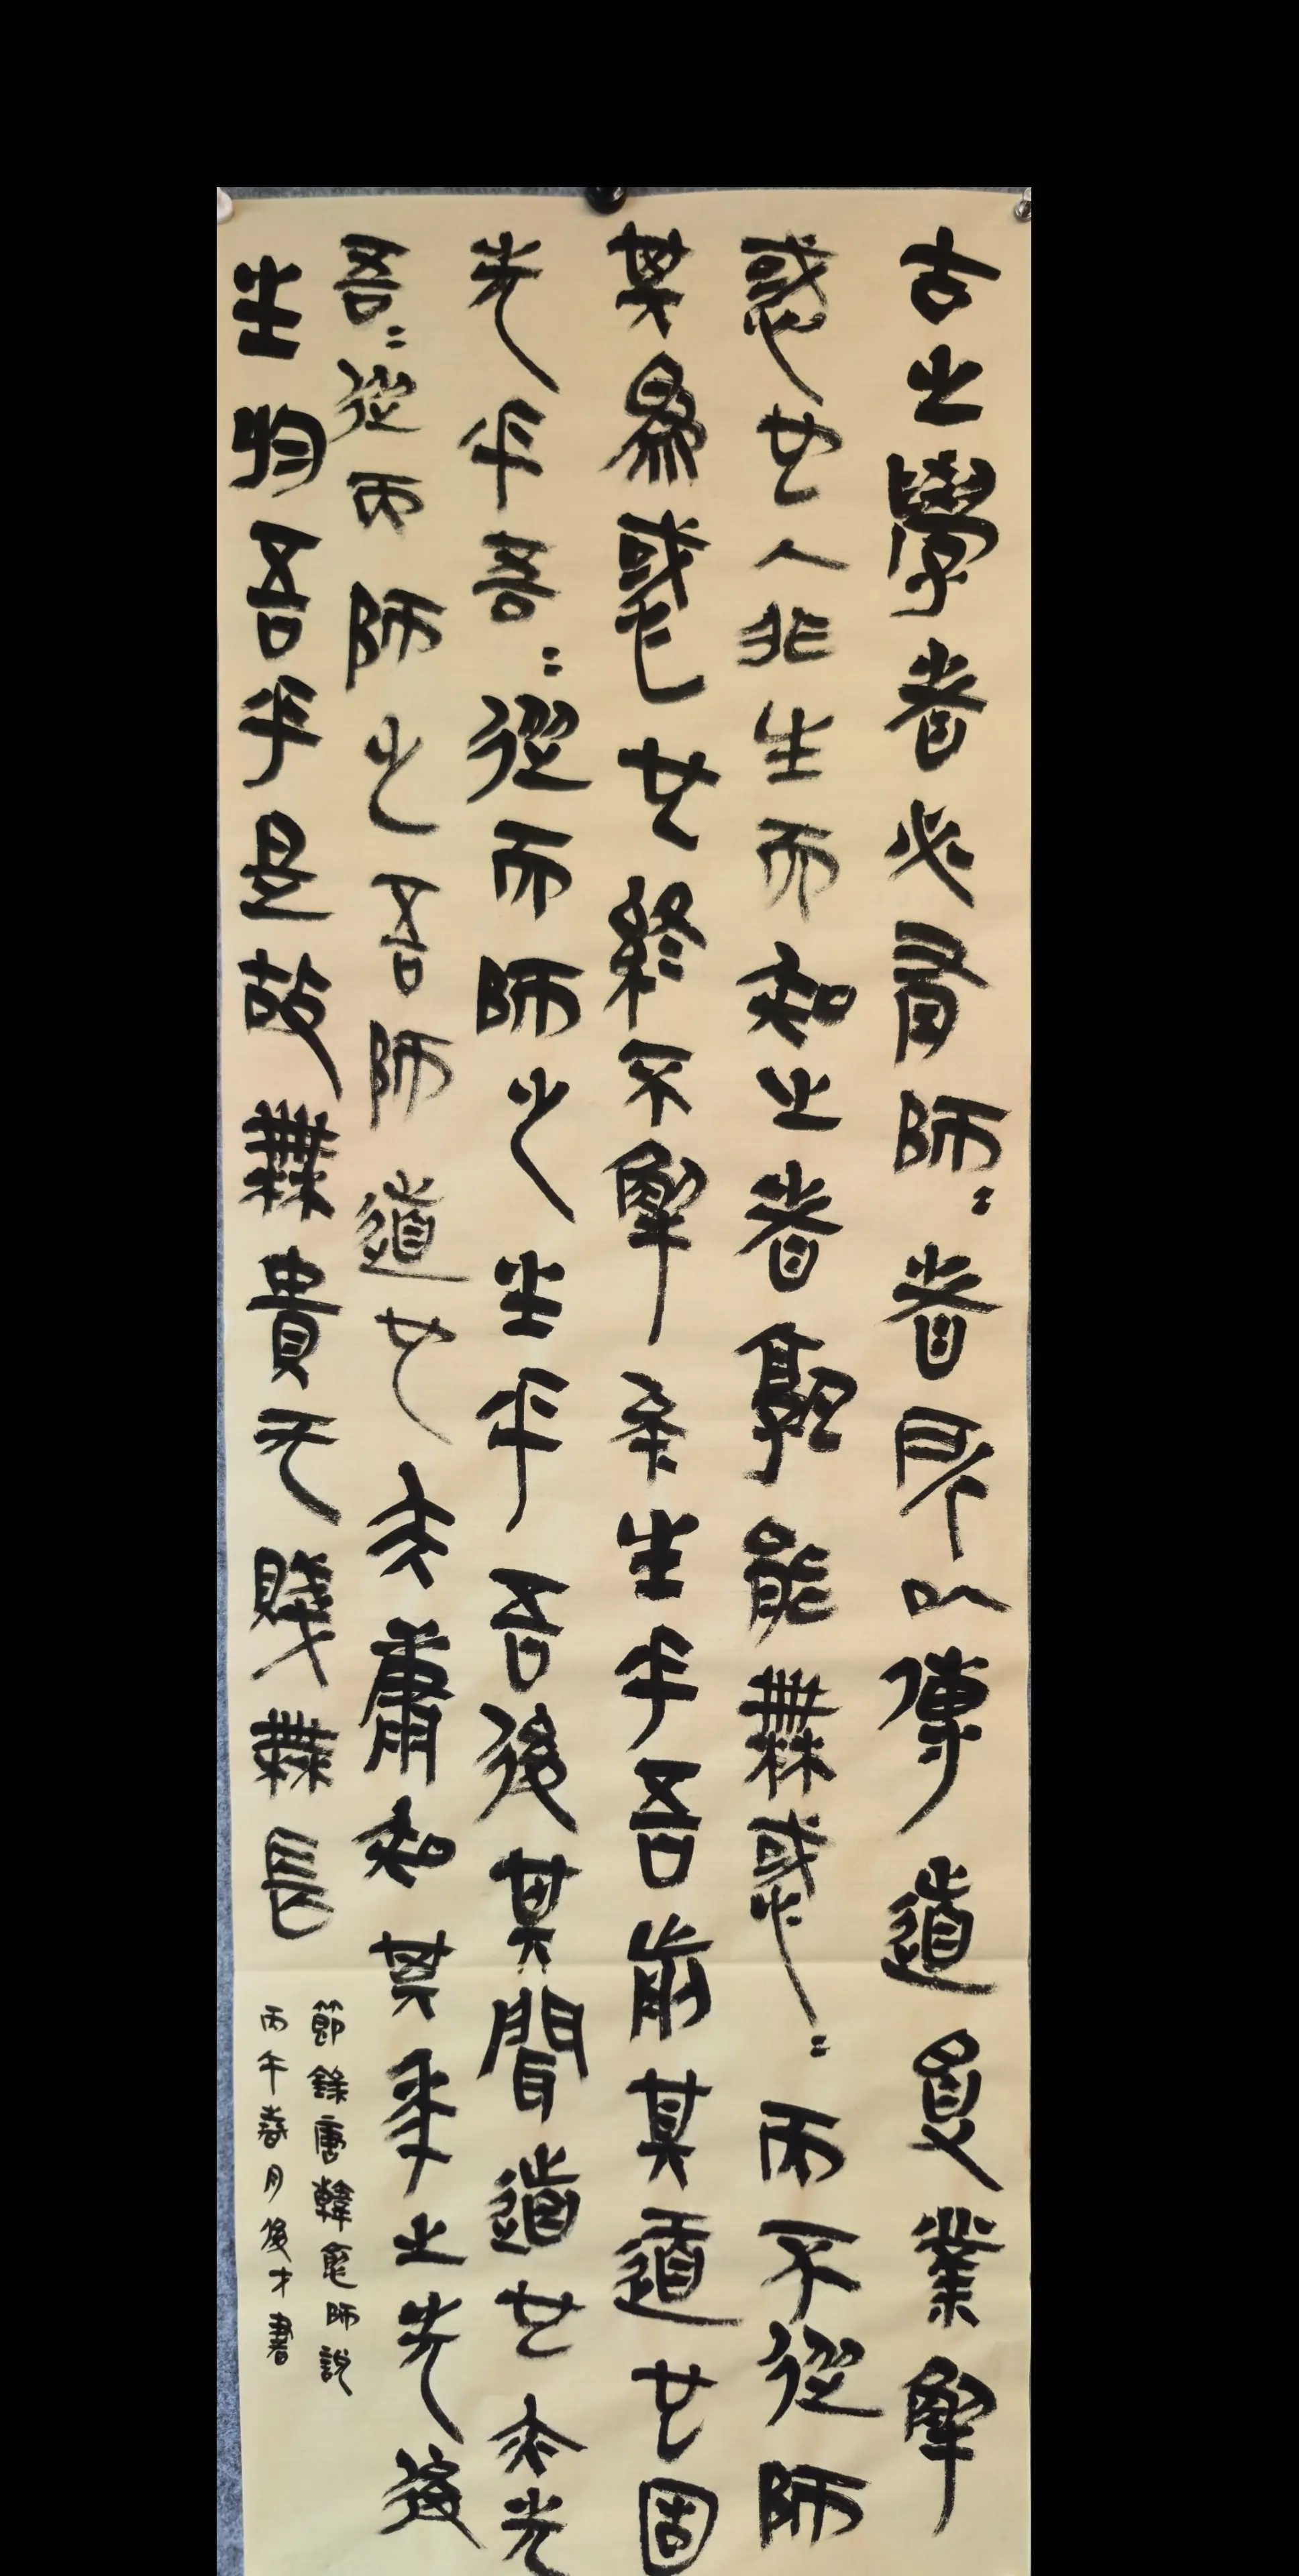 古之學者必有師〻者所以傳道受業解
惑也人非生而知之者孰能無惑〻而不從師
其為惑也終不解矣生乎吾前其道也固
先乎吾〻從而師之生乎吾後其聞道也亦先
吾〻從而師之吾師道也夫庸知其年之先後
生於吾乎是故無貴无賤無長
節錄唐韓愈師說
丙午春月後才書